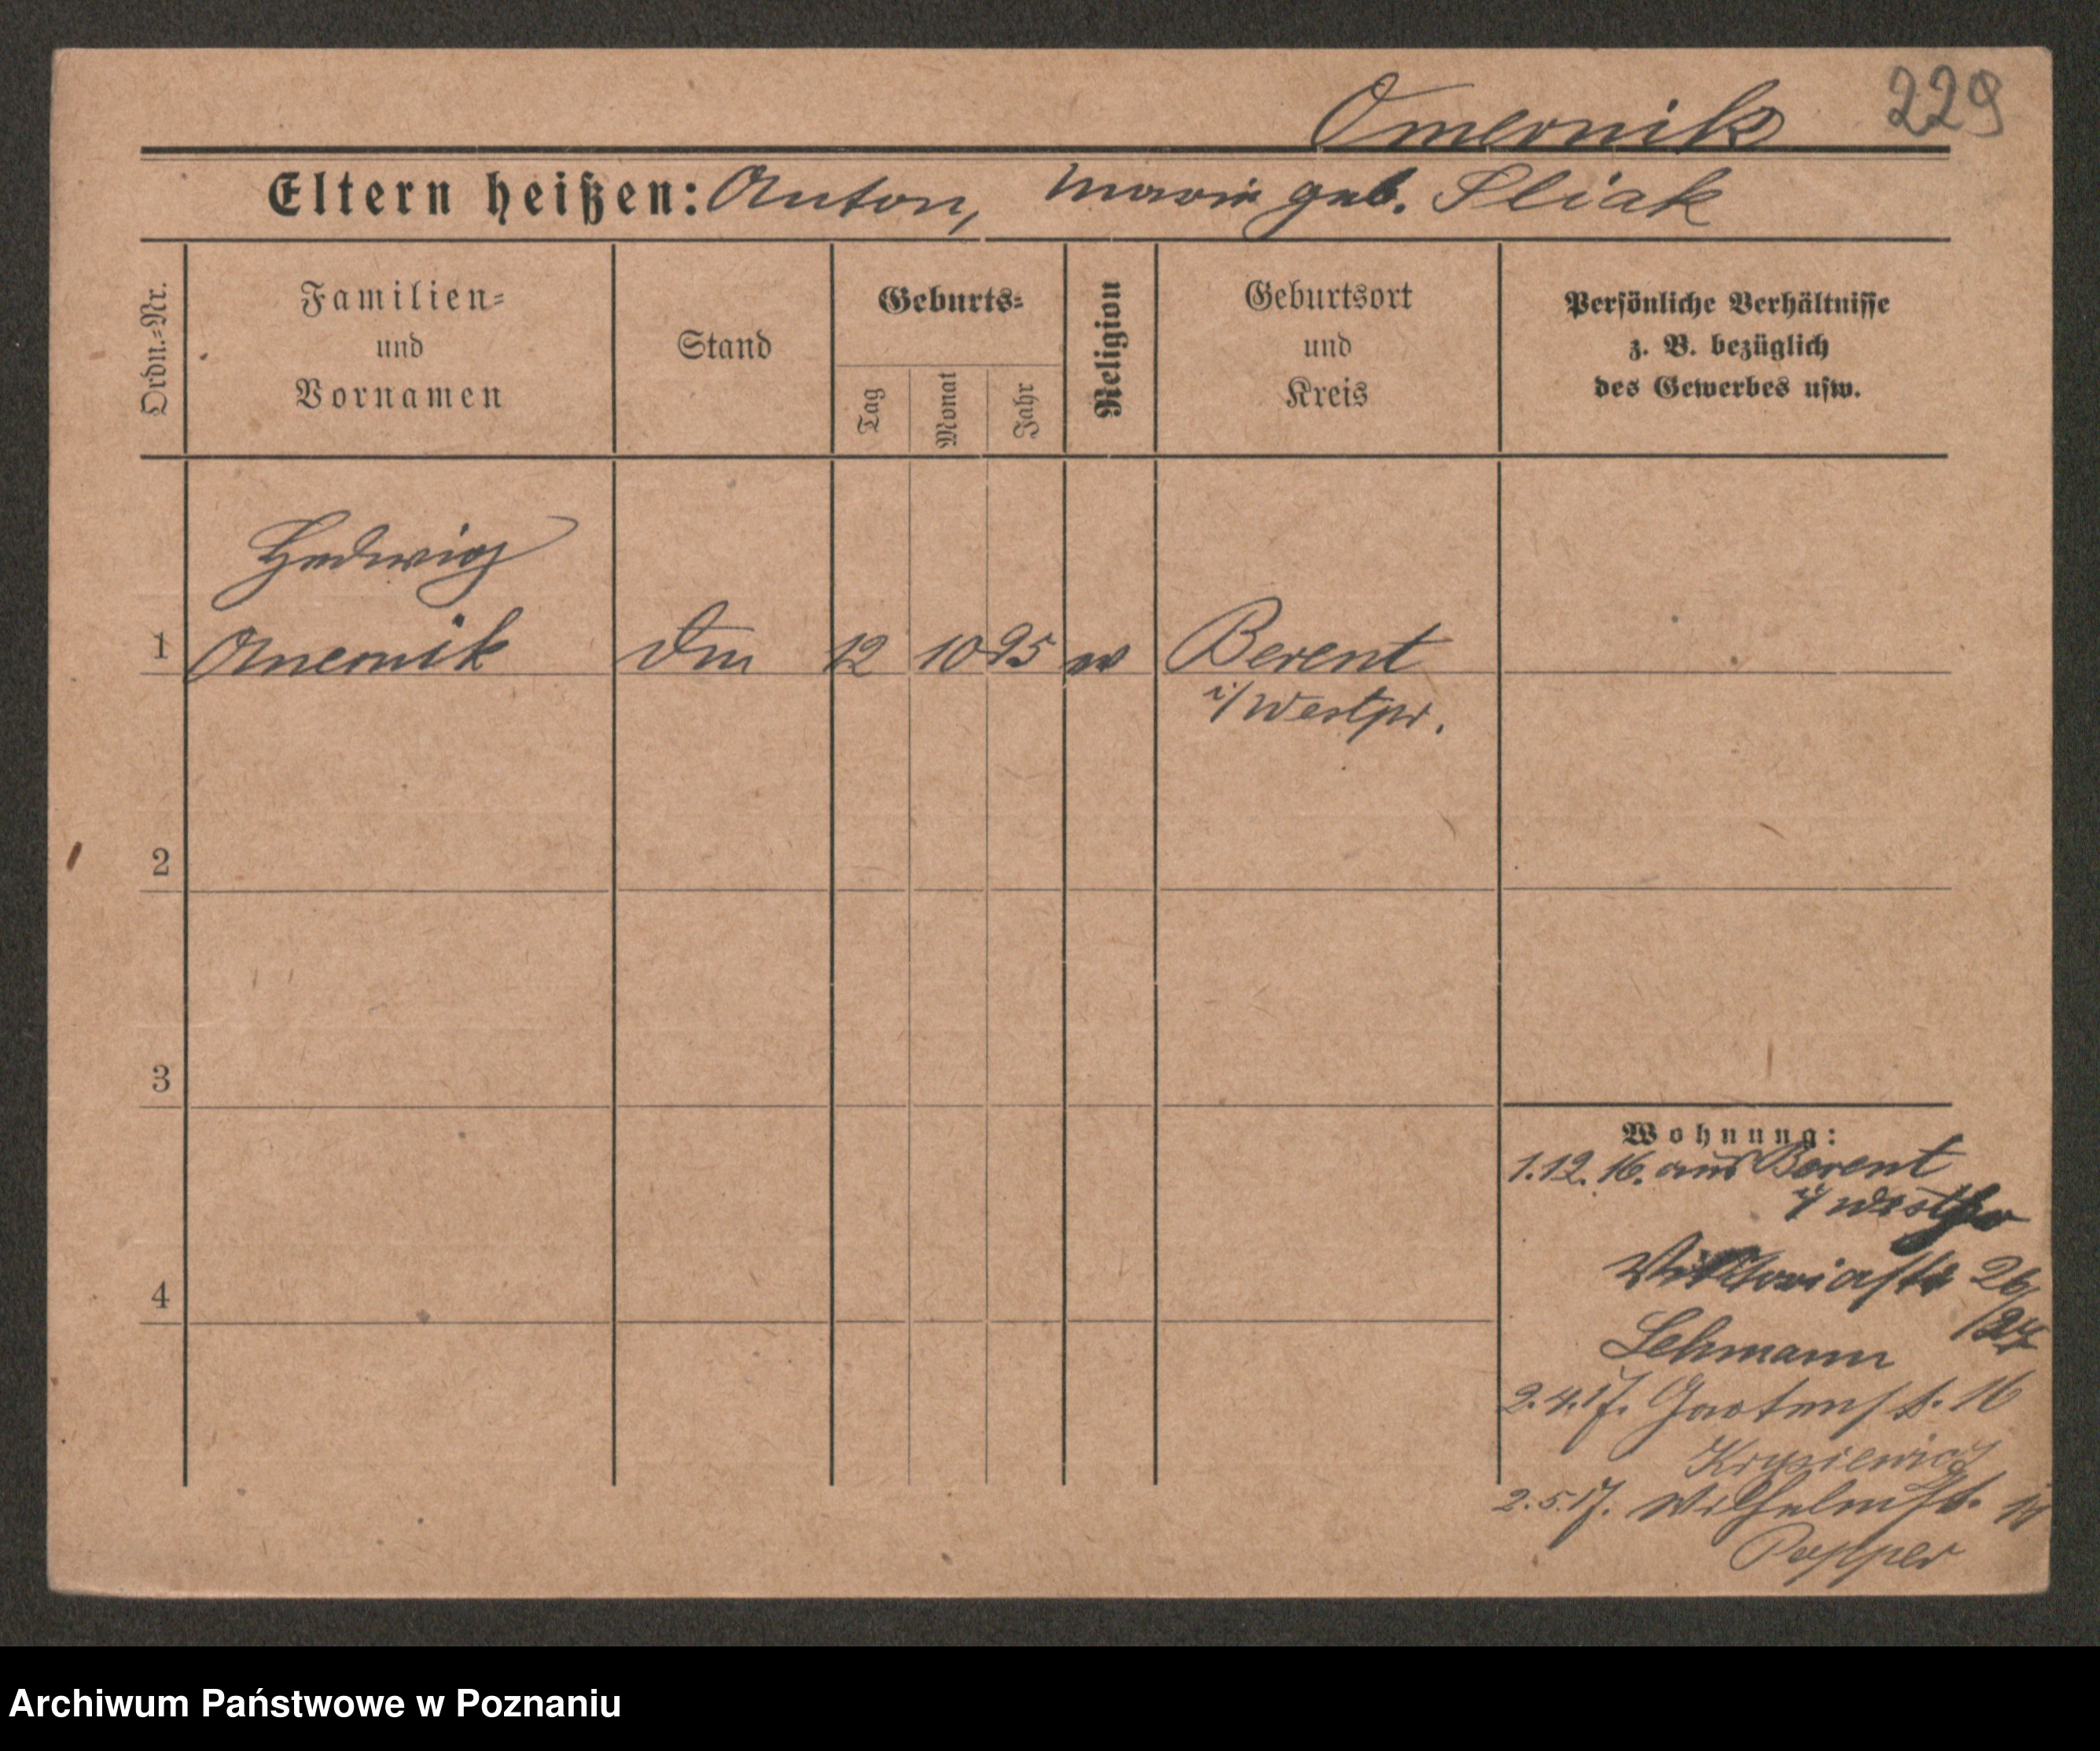 Omernik 229
Eltern heißen: Anton, Marie geb. Sliak
Ordn.=Nr.
Familien=
und
Vornamen
Stand
Geburts=
Tag
Monat
Jahr
Religion
Geburtsort
und
Kreis
Persönliche Verhältnisse
z. B. bezüglich
des Gewerbes usw.
Hedwig
1 Omernik 12 10 95 Berent
i/Westpr.
2
3
4
Wohnung:
1.12.16. aus Berent
i/Westpr
Viktoriastr 26/
Lehmann
2.4.17. Gartenst. 16
Krysiewicz
2.5.17. Wilhelmst.
Popper
Archiwum Państwowe w Poznaniu